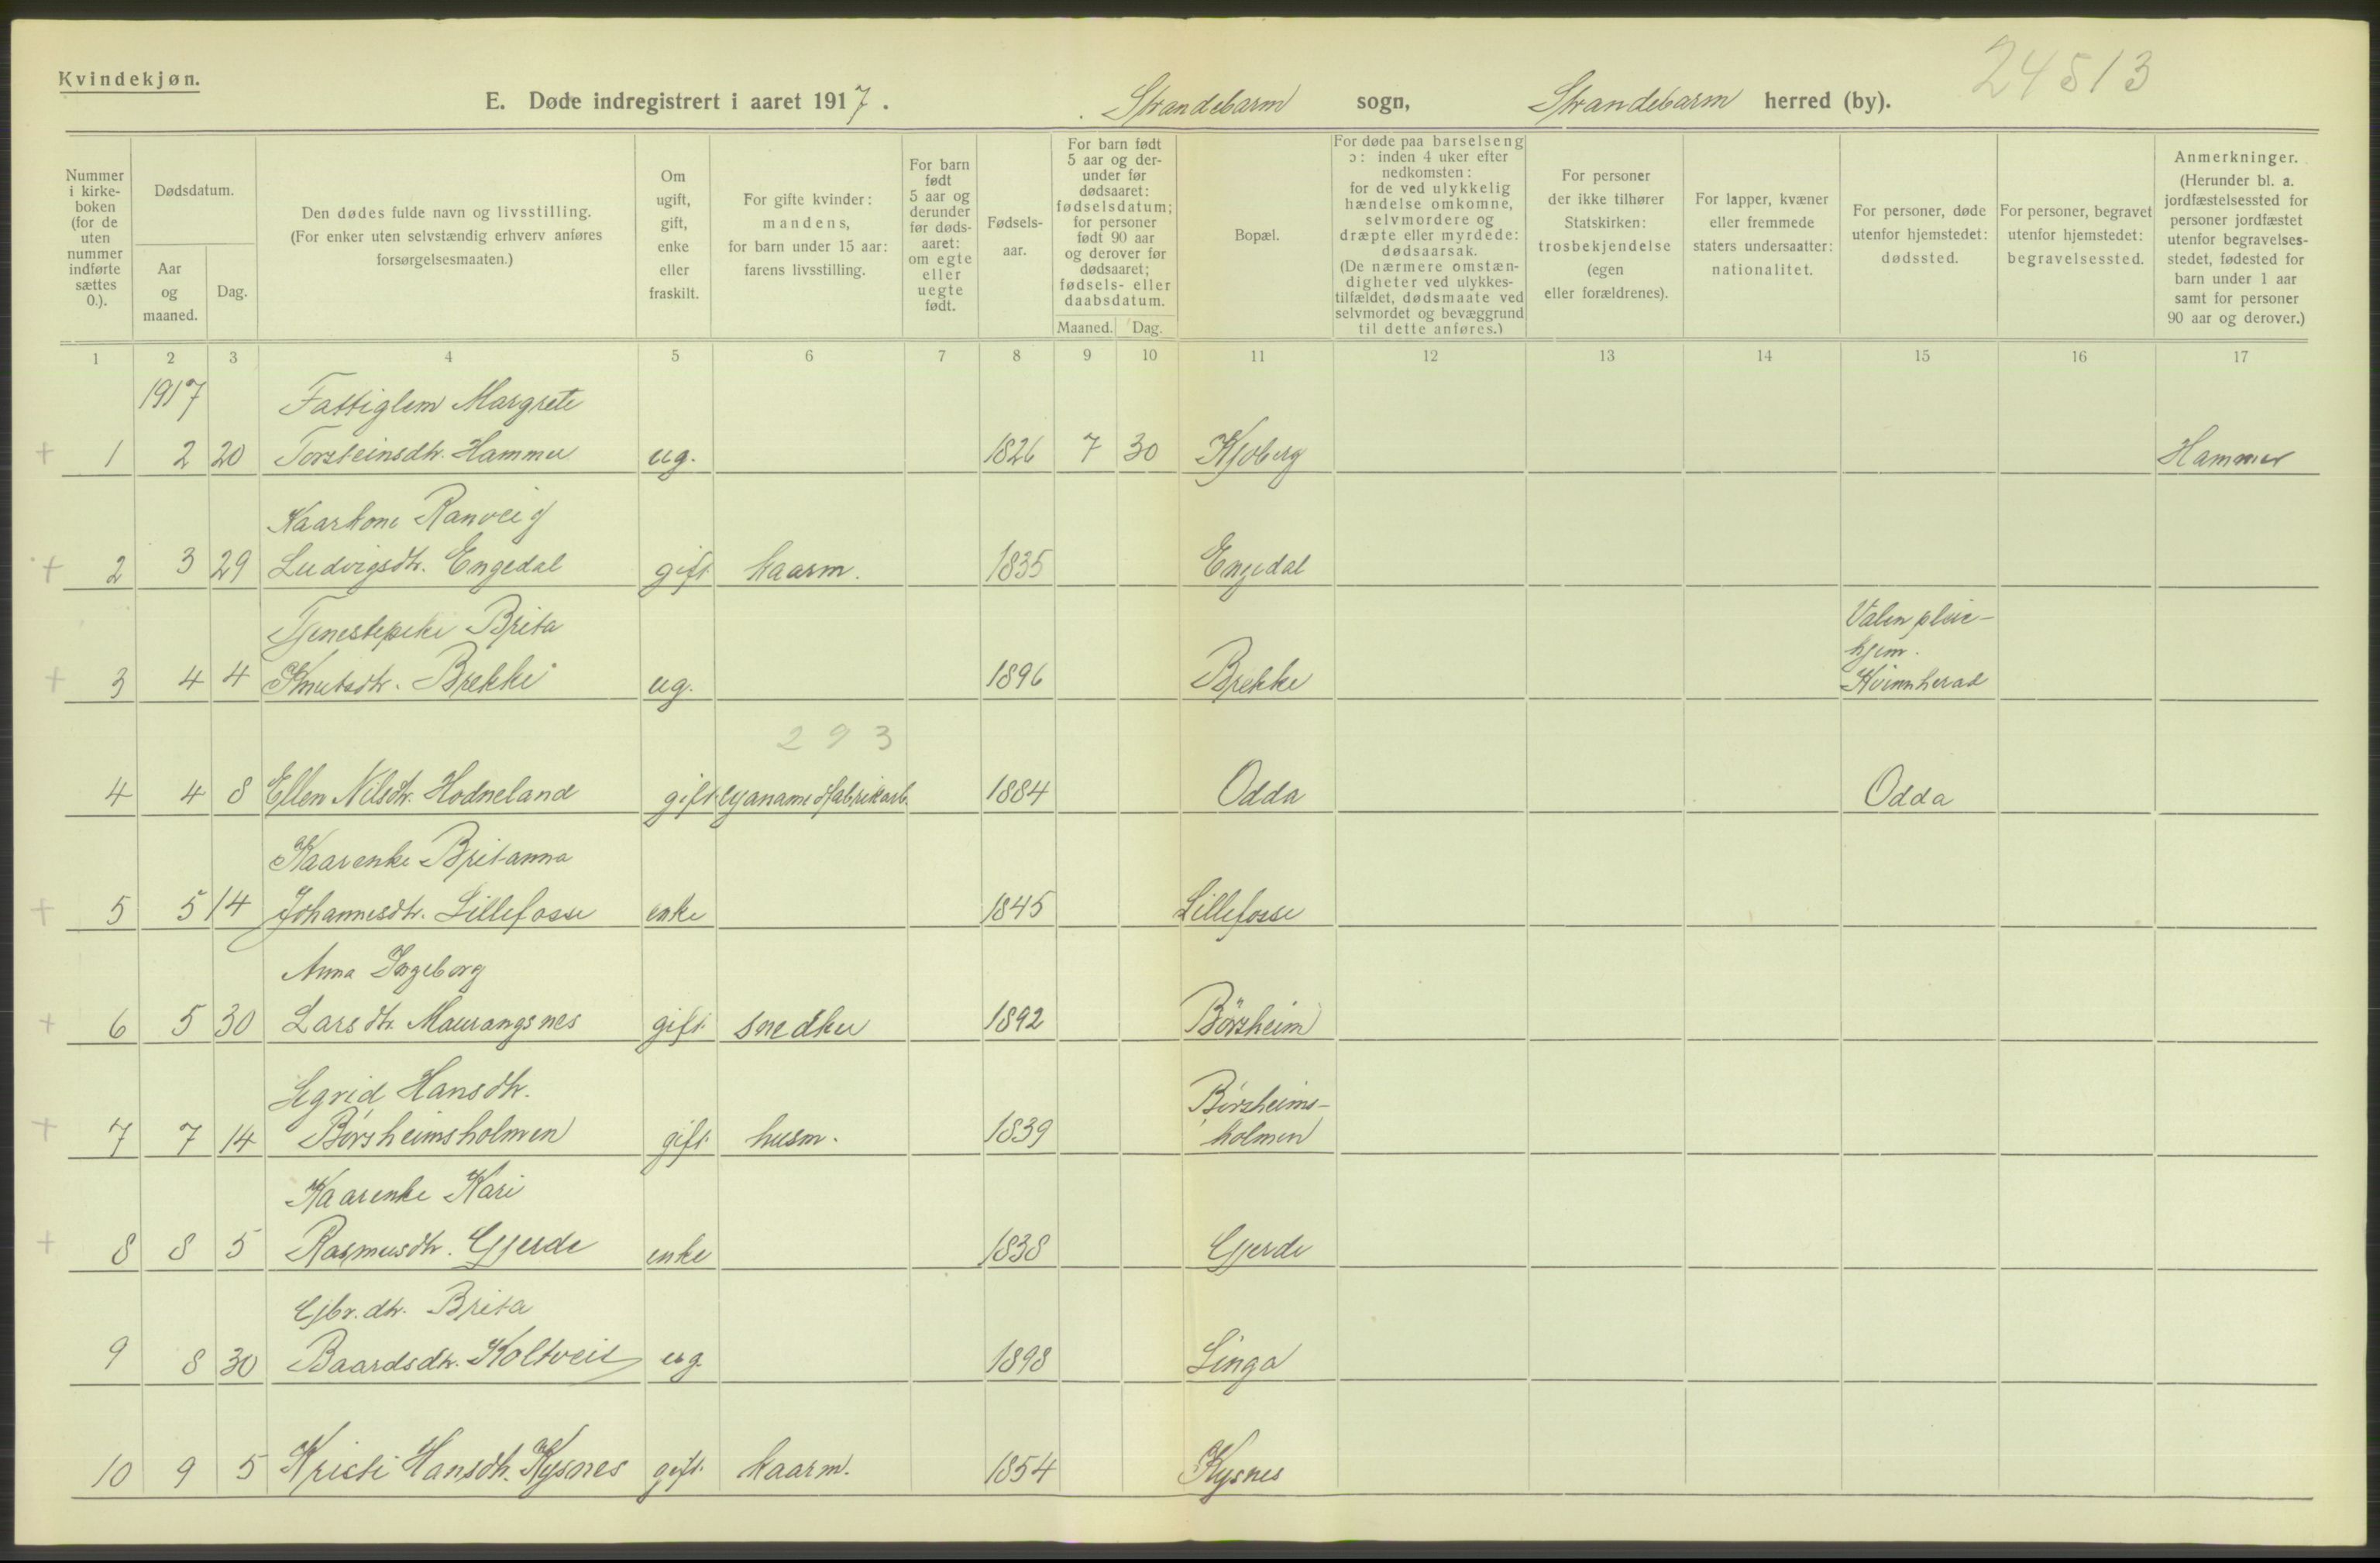 Kvindekjøn.
24513
E. Døde indregistrert i aaret 1917. Strandebarm sogn, Strandebarm herred (by).
Nummer i kirkeboken (for de uten nummer indførte sættes 0.).
Dødsdatum.
Aar og maaned.
Dag.
Den dødes fulde navn og livsstilling.
(For enker uten selvstændig erhverv anføres forsørgelsesmaaten.)
Om ugift, gift, enke eller fraskilt.
For gifte kvinder: mandens, for barn under 15 aar: farens livsstilling.
For barn født 5 aar og derunder før dødsaaret: om egte eller uegte født.
Fødselsaar.
For barn født 5 aar og derunder før dødsaaret: fødselsdatum; for personer født 90 aar og derover før dødsaaret; fødsels- eller daabsdatum.
Maaned. Dag.
Bopæl.
For døde paa barselseng ɔ: inden 4 uker efter nedkomsten: for de ved ulykkelig hændelse omkomne, selvmordere og dræpte eller myrdede: dødsaarsak.
(De nærmere omstændigheter ved ulykkestilfældet, dødsmaate ved selvmordet og bevæggrund til dette anføres.)
For personer der ikke tilhører Statskirken: trosbekjendelse (egen eller forældrenes).
For lapper, kvæner eller fremmede staters undersaatter: nationalitet.
For personer, døde utenfor hjemstedet: dødssted.
For personer, begravet utenfor hjemstedet: begravelsessted.
Anmerkninger.
(Herunder bl. a. jordfæstelsessted for personer jordfæstet utenfor begravelsesstedet, fødested for barn under 1 aar samt for personer 90 aar og derover.)
1 2 3 4 5 6 7 8 9 10 11 12 13 14 15 16 17
1917 Fattiglem Margrete
+ 1 2 20 Torsteinsdtr. Hammer ug. 1826 7 30 Kjoberg Hammer
Kaarkone Ranveig
+ 2 3 29 Ludvigsdtr. Engedal gift kaarm. 1835 Engedal
Tjenestepike Brita Valen pleie-
hjem.
+ 3 4 4 Knutsdtr. Brekke ug. 1896 Brekke Kvinnherad
293
4 4 8 Ellen Nilsdtr. Hodneland gift cyanamidfabrikarb. 1884 Odda Odda
Kaarenke Britanna
+ 5 5 14 Johannesdtr. Lillefosse enke 1845 Lillefosse
Anna Ingeborg
+ 6 5 30 Larsdtr. Maurangsnes gift snedker 1892 Börsheim
Sigrid Hansdtr. Börsheims-
+ 7 7 14 Børsheimsholmen gift husm. 1839 holmen
Kaarenke Kari
+ 8 8 5 Rasmusdtr. Gjerde enke 1838 Gjerde
Gbr.dtr. Brita
9 8 30 Baardsdtr. Koltveit ug. 1898 Linga
10 9 5 Kristi Hansdtr. Kysnes gift kaarm. 1854 Kysnes